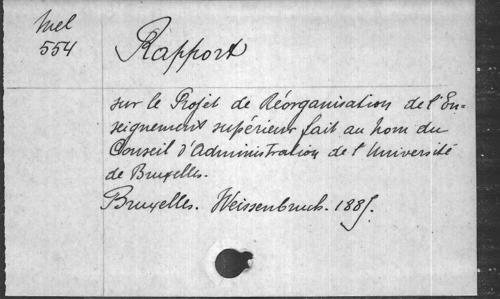 Mel
554
Rapport
sur le Projet de Réorganisation de l'En=
seignement supérieur fait au nom du
Conseil d'Administration de l'Université
de Bruxelles.
Bruxelles. Weissenbruch. 1885.